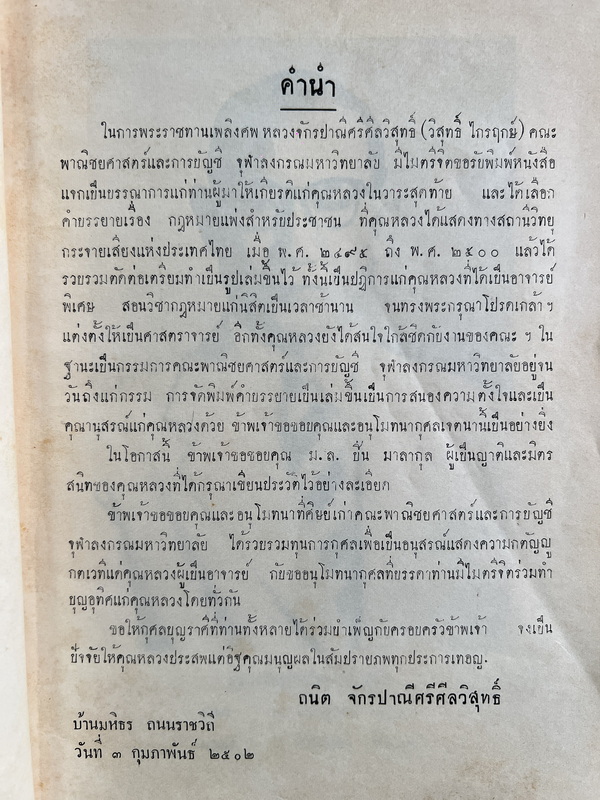 คำนำ
ในการพระราชทานเพลิงศพ หลวงจักรปาณีศรีศีลวิสุทธิ์ (วิสุทธิ์ ไกรฤกษ์) คณะ
พาณิชยศาสตร์และการบัญชี จุฬาลงกรณมหาวิทยาลัย มีไมตรีจิตขอรับพิมพ์หนังสือ
แจกเป็นบรรณาการแก่ท่านผู้มาให้เกียรติแก่คุณหลวงในวาระสุดท้าย และได้เลือก
คำบรรยายเรื่อง กฎหมายแพ่งสำหรับประชาชน ที่คุณหลวงได้แสดงทางสถานีวิทยุ
กระจายเสียงแห่งประเทศไทย เมื่อ พ.ศ. ๒๔๙๕ ถึง พ.ศ. ๒๕๐๐ แล้วได้
รวบรวมตัดต่อเตรียมทำเป็นรูปเล่มขึ้นไว้ ทั้งนี้เป็นปฏิการแก่คุณหลวงที่ได้เป็นอาจารย์
พิเศษ สอนวิชากฎหมายแก่นิสิตเป็นเวลาช้านาน จนทรงพระกรุณาโปรดเกล้าฯ
แต่งตั้งให้เป็นศาสตราจารย์ อีกทั้งคุณหลวงยังได้สนใจใกล้ชิดกับงานของคณะ ฯ ใน
ฐานะเป็นกรรมการคณะพาณิชยศาสตร์และการบัญชี จุฬาลงกรณมหาวิทยาลัยอยู่จน
วันถึงแก่กรรม การจัดพิมพ์คำบรรยายเป็นเล่มขึ้นเป็นการสนองความตั้งใจและเป็น
คุณานุสรณ์แก่คุณหลวงด้วย ข้าพเจ้าขอขอบคุณและอนุโมทนากุศลเจตนานี้เป็นอย่างยิ่ง
ในโอกาสนี้ ข้าพเจ้าขอขอบคุณ ม.ล. ปิ่น มาลากุล ผู้เป็นญาติและมิตร
สนิทของคุณหลวงที่ได้กรุณาเขียนประวัติไว้อย่างละเอียด
ข้าพเจ้าขอขอบคุณและอนุโมทนาที่ศิษย์เก่าคณะพาณิชยศาสตร์และการบัญชี
จุฬาลงกรณมหาวิทยาลัย ได้รวบรวมทุนการกุศลเพื่อเป็นอนุสรณ์แสดงความกตัญญู
กตเวทีแด่คุณหลวงผู้เป็นอาจารย์ กับขออนุโมทนากุศลที่บรรดาท่านมีไมตรีจิตร่วมทำ
บุญอุทิศแก่คุณหลวงโดยทั่วกัน
ขอให้กุศลบุญราศีที่ท่านทั้งหลายได้ร่วมบำเพ็ญกับครอบครัวข้าพเจ้า จงเป็น
ปัจจัยให้คุณหลวงประสพแต่อิฐคุณมนุญผลในสัมปรายภพทุกประการเทอญ.
ถนิต จักรปาณีศรีศีลวิสุทธิ์
บ้านมหิธร ถนนราชวิถี
วันที่ ๓ กุมภาพันธ์ ๒๕๐๒